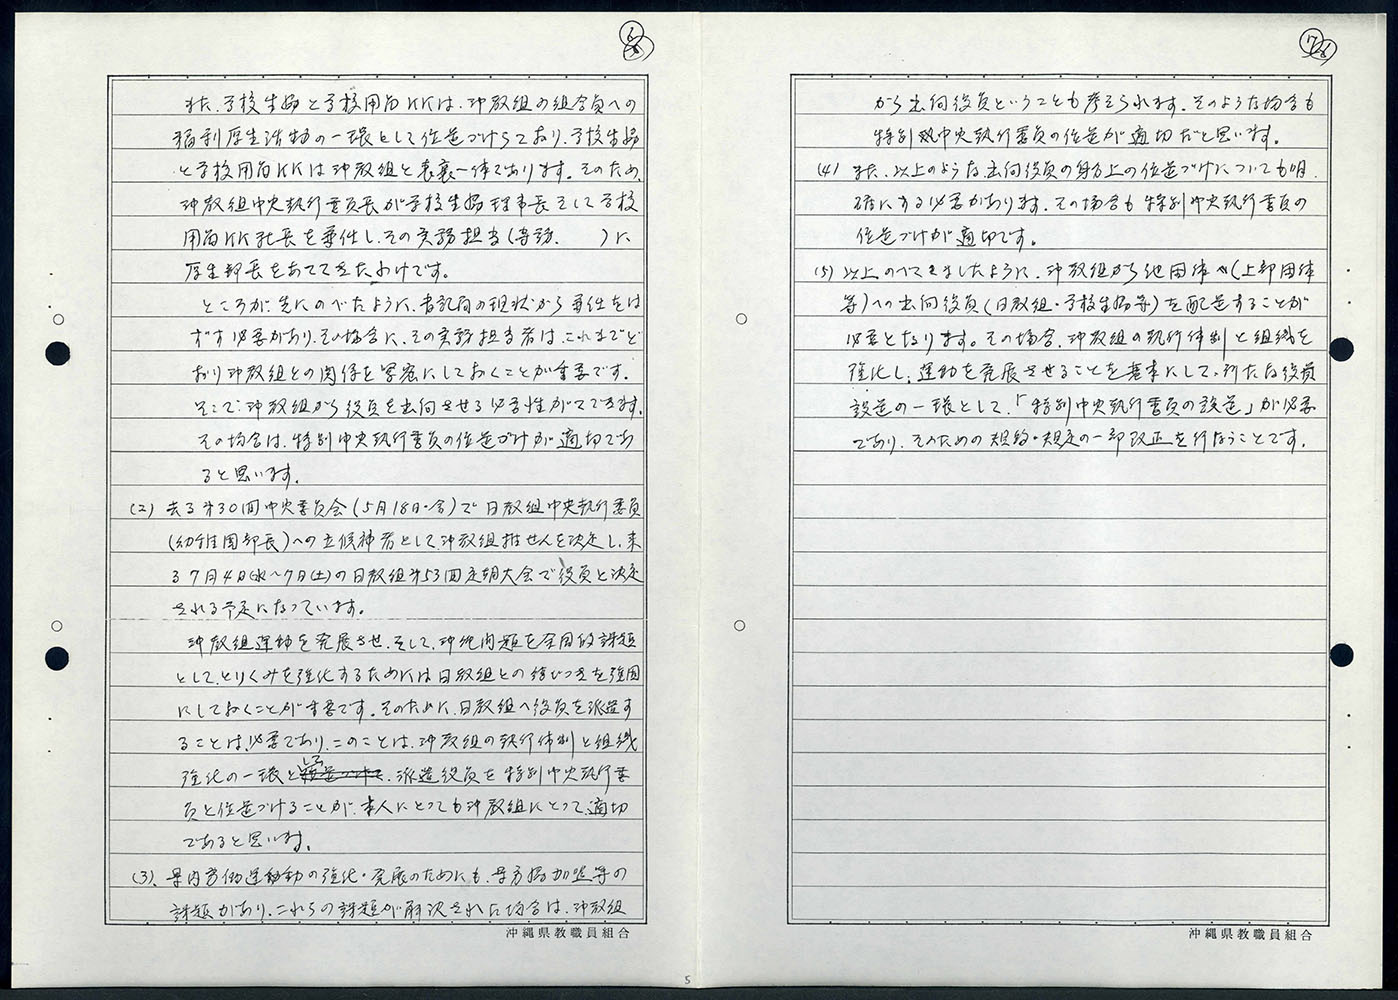 6
8
また、学校生協と学校用品KKは、沖教組の組合員への
福利厚生活動の一環として位置づけらており、学校生協
と学校用品KKは沖教組と表裏一体であります。そのため、
沖教組中央執行委員長が学校生協理事長そして学校
用品KK社長を兼任し、その実務担当(専務、　　)に
厚生部長をあててきたわけです。
ところが、先にのべたように、書記局の現状から兼任をは
ずす必要があり、その場合に、その実務担当者は、これまでど
おり沖教組との関係を緊密にしておくことが重要です。
そこで、沖教組から役員を出向させる必要性がでてきます。
その場合は、特別中央執行委員の位置づけが適切であ
ると思います。
(2) 去る第30回中央委員会(5月18日・金)で日教組中央執行委員
(幼稚園部長)への立候補者として、沖教組推せんを決定し、来
る7月4日(水)〜7日(土)の日教組第53回定期大会で役員と決定
される予定になっています。
沖教組運動を発展させ、そして、沖縄問題を全国的課題
として、とりくみを強化するためには日教組との結びつきを強固
にしておくことが重要です。そのために、日教組へ役員を派遣す
ることは、必要であり、このことは、沖教組の執行体制と組織
強化の一環として、派遣役員を特別中央執行委
員と位置づけることが、本人にとっても沖教組にとって、適切
であると思います。
(3) 県内労働運動の強化・発展のためにも、県労協加盟等の
課題があり、これらの課題が解決された場合は、沖教組
沖縄県教職員組合
5
7
8
から出向役員ということも考えられます。そのような場合も
特別中央執行委員の位置が適切だと思います。
(4) また、以上のような出向役員の身分上の位置づけについても明
確にする必要があります。その場合も特別中央執行委員の
位置づけが適切です。
(5) 以上のべてきましたように、沖教組から他団体(上部団体
等)への出向役員(日教組・学校生協等)を配置することが
必要となります。その場合、沖教組の執行体制と組織を
強化し、運動を発展させることを基本にして、新たな役員
設置の一環として、「特別中央執行委員の設置」が必要
であり、そのための規約・規定の一部改正を行なうことです。
沖縄県教職員組合